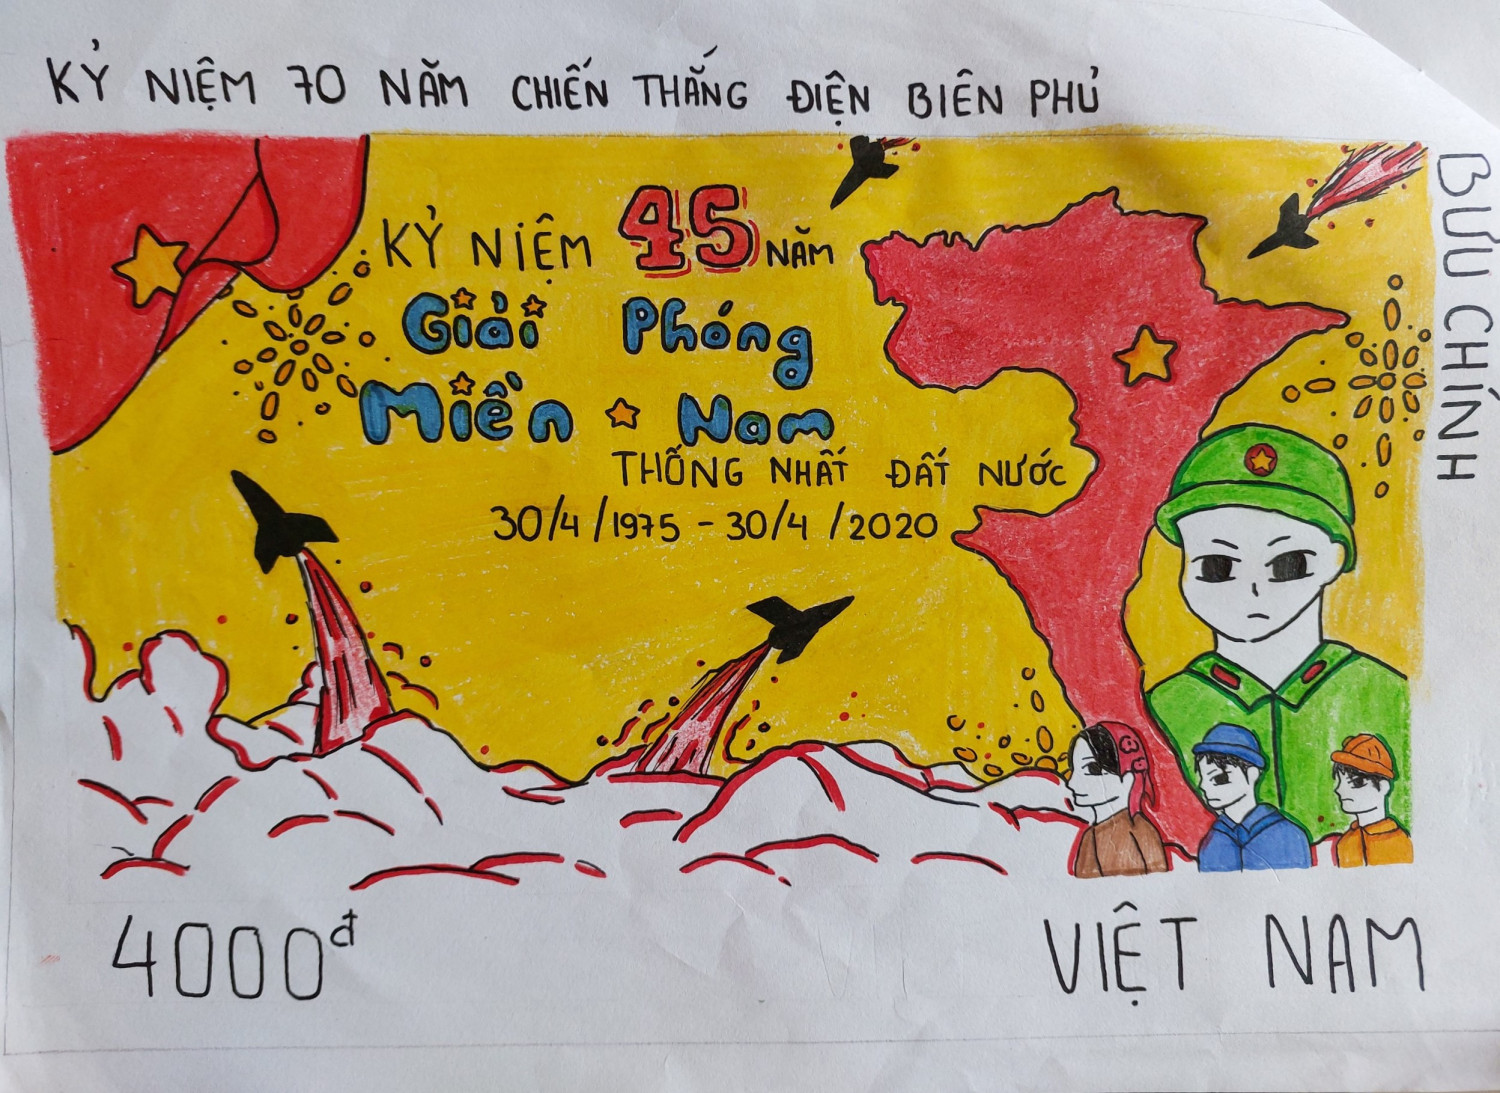 KỶ NIỆM 70 NĂM CHIẾN THẮNG ĐIỆN BIÊN PHỦ
KỶ NIỆM 45 NĂM
Giải Phóng
Miền Nam
THỐNG NHẤT ĐẤT NƯỚC
30/4/1975 - 30/4/2020
BƯU CHÍNH
4000đ
VIỆT NAM